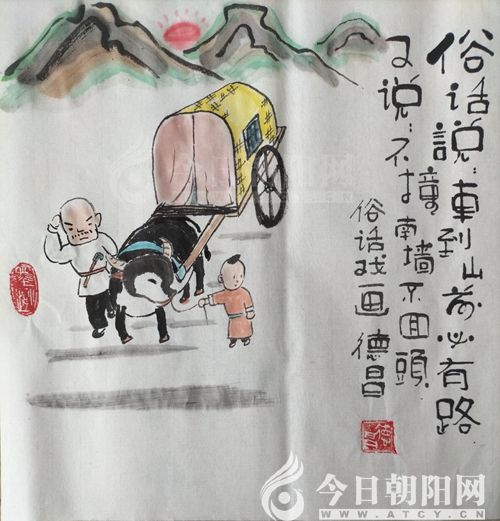 俗话説:車到山前必有路
又说:不撞南墙不回頭
俗话戏画 德昌
德昌
今日朝阳网
WWW.ATCY.CN